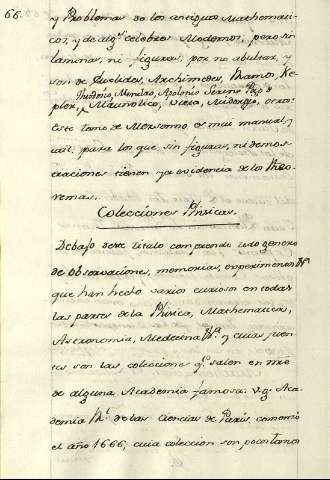 66.
y Problemas de los antiguos Mathemati-
cos, y de algs. celebres Modernos, pero sin
laminas, ni figuras, por no abultar, y
son de Euclides, Archimedes, Ramo, Ke-
Theodosio, Menelao, Apolonio Sereno
pler, Maurolico, Vieta, Midorgio, otros:
Este tomo de Mersenno es mui manual, y
util, para los que, sin figuras, ni demos-
traciones tienen ya evidencia de los
remas.
Colecciones Phisicas.
Debajo deste titulo comprendo todo genero
de observaciones, memorias, experimentos &a.
que han hecho varios curiosos en todas
las partes de la Phisica, Mathematica,
Astronomia, Medecina &a. y cuias fuen-
tes son las colecciones qe. salen en nre.
de alguna Academia famosa. v.g. Aca-
demia Rl. de las Ciencias de Paris, comenzò
el año 1666; cuia coleccion son pocos tomos